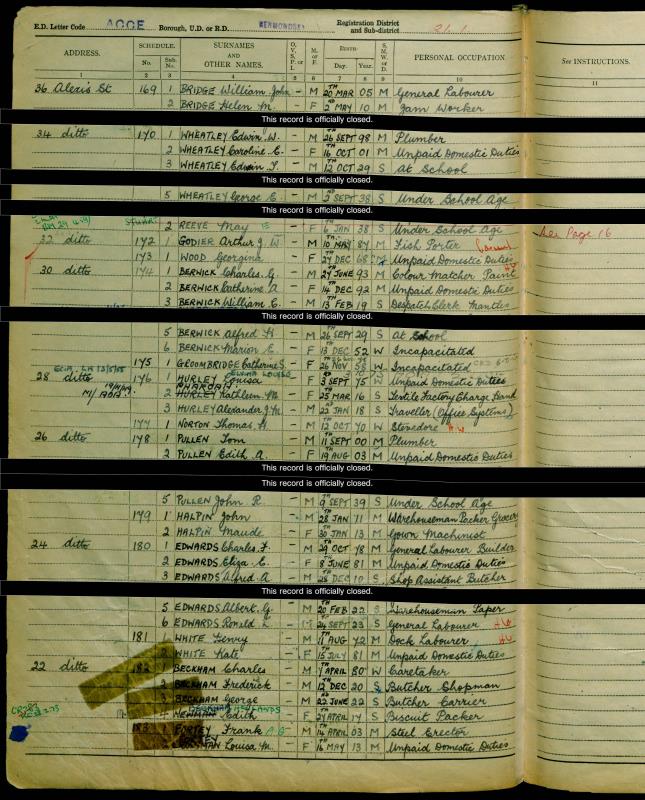 E.D. Letter Code AOCE Borough, U.D. or R.D. BERMONDSEY Registration District and Sub-district 21.1
ADDRESS. SCHEDULE. No. Sub. No. SURNAMES AND OTHER NAMES. O, V, S, P. or I. M. or F. BIRTH— Day. Year. S. M. W. or D. PERSONAL OCCUPATION. See INSTRUCTIONS.
1 2 3 4 5 6 7 8 9 10 11
36 Alexis St 169 1 BRIDGE William John - M 20TH MAR 05 M General Labourer
2 BRIDGE Helen M. - F 2ND MAY 10 M Jam Worker
This record is officially closed.
34 ditto 170 1 WHEATLEY Edwin W. - M 26TH SEPT 98 M Plumber
2 WHEATLEY Caroline E. - F 16TH OCT 01 M Unpaid Domestic Duties
3 WHEATLEY Edwin T. - M 12TH OCT 29 S At School
This record is officially closed.
5 WHEATLEY George E. - M 2ND SEPT 38 S Under School Age
This record is officially closed.
2 REEVE May - F 6TH JAN 38 S Under School Age See Page 16
32 ditto 172 1 GODIER Arthur J. W. - M 10TH MAY 87 M Fish Porter
173 1 WOOD Georgina - F 27TH DEC 68 Unpaid Domestic Duties
30 ditto 174 1 BERWICK Charles. G. - M 27TH JUNE 93 M Colour Matcher Paint
2 BERWICK Catherine A - F 14TH DEC 92 M Unpaid Domestic Duties
3 BERWICK William E. - M 13TH FEB 19 S Despatch Clerk Mantles
This record is officially closed.
5 BERWICK Alfred H. - M 26TH SEPT 29 S At School
6 BERWICK Marion E. - F 13TH DEC 52 W Incapacitated
175 1 GROOMBRIDGE Catherine S. - F 26 NOV 58 W Incapacitated
28 ditto 176 1 HURLEY Louisa - F 3RD SEPT 75 W Unpaid Domestic Duties
2 HURLEY Kathleen M. - F 25TH MAR 16 S Textile Factory Charge Hand
3 HURLEY Alexander J. M. - M 22ND JAN 18 S Traveller (Office Systems)
177 1 NORTON Thomas. H. - M 12TH OCT 70 W Stevedore H.W
26 ditto 178 1 PULLEN Tom - M 11TH SEPT 00 M Plumber
2 PULLEN Edith A. - F 19TH AUG 03 M Unpaid Domestic Duties
This record is officially closed.
This record is officially closed.
5 PULLEN John R. - M 9TH SEPT 39 S Under School Age
179 1 HALPIN John - M 28TH JAN 11 M Warehouseman Packer Grocery
2 HALPIN Maude - F 30TH JAN 13 M Gown Machinist
24 ditto 180 1 EDWARDS Charles. F. - M 29TH OCT 78 M General Labourer Builder
2 EDWARDS Eliza E. - F 8TH JUNE 81 M Unpaid Domestic Duties
3 EDWARDS Alfred A - M 28TH DEC 10 S Shop Assistant Butcher
This record is officially closed.
5 EDWARDS Albert. G. - M 20TH FEB 22 S Warehouseman Paper
6 EDWARDS Ronald - M 24TH SEPT 23 S General Labourer H.W
181 1 WHITE Henry - M 11TH AUG 72 M Dock Labourer H.W
2 WHITE Kate - F 15TH JULY 81 M Unpaid Domestic Duties
22 ditto 182 1 BECKHAM Charles - M 7TH APRIL 80 W Caretaker
2 BECKHAM Frederick - M 12TH DEC 20 S Butcher Shopman
3 BECKHAM George - M 22ND JUNE 22 S Butcher Carrier
4 NEWMAN Edith - F 27TH APRIL 17 S Biscuit Packer
183 1 Frank - M 14TH APRIL 03 M Steel Erector
2 Louisa M. - F 16TH MAY 13 M Unpaid Domestic Duties